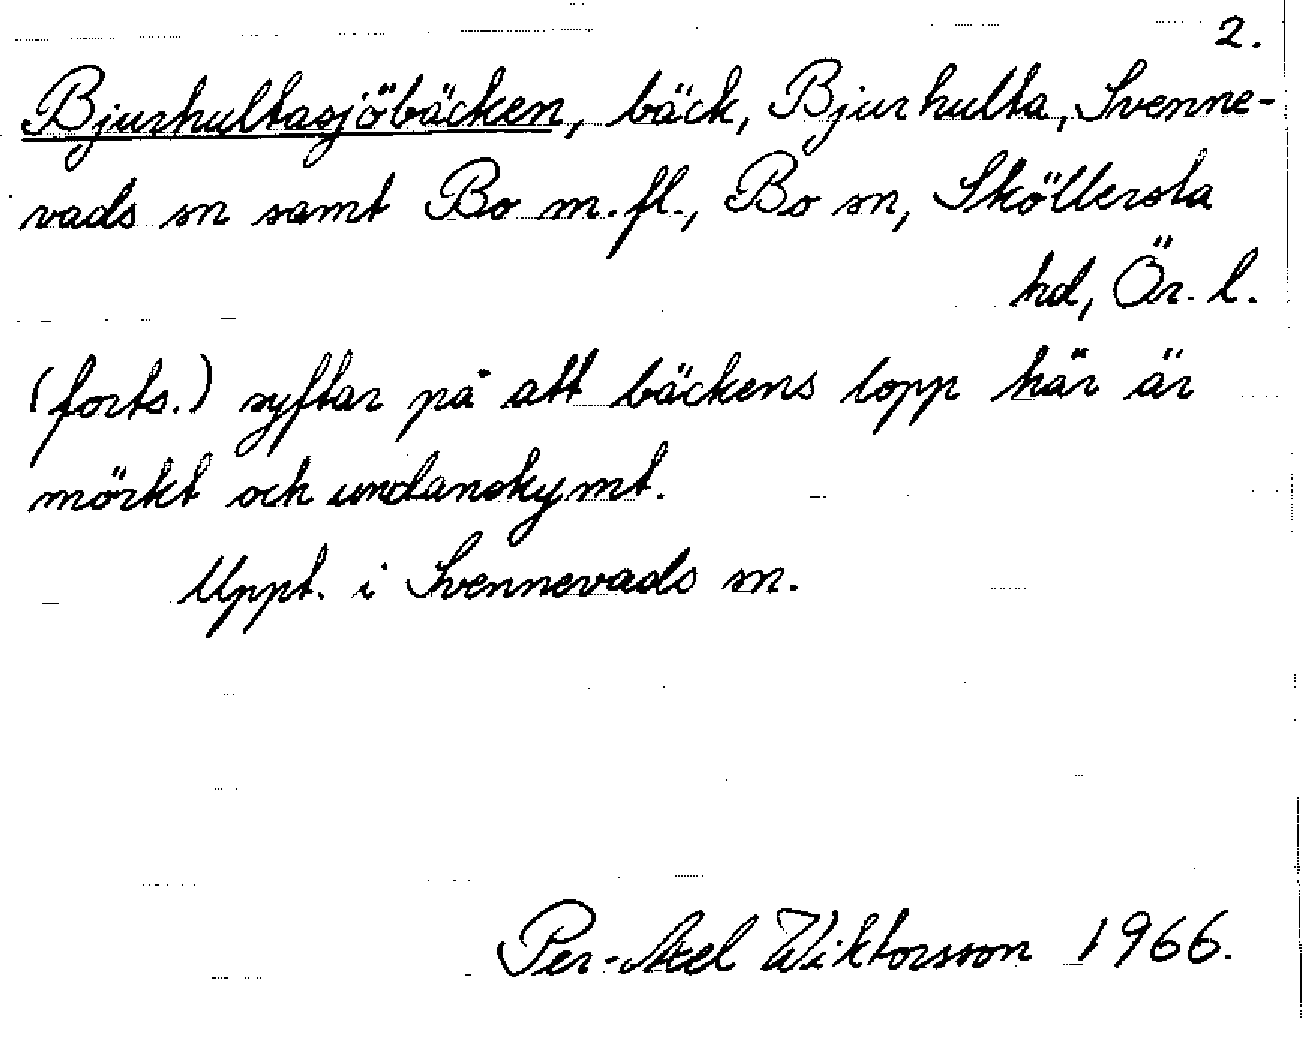 2.
Bjurhultasjöbäcken, bäck, Bjurhulta, Svenne-
vads sn samt Bo m.fl., Bo sn, Sköllersta
hd, Ör. l.
(forts.) syftar på att bäckens lopp här är
mörkt och undanskymt.
Uppt. i Svennevads sn.
Per-Axel Wiktorsson 1966.